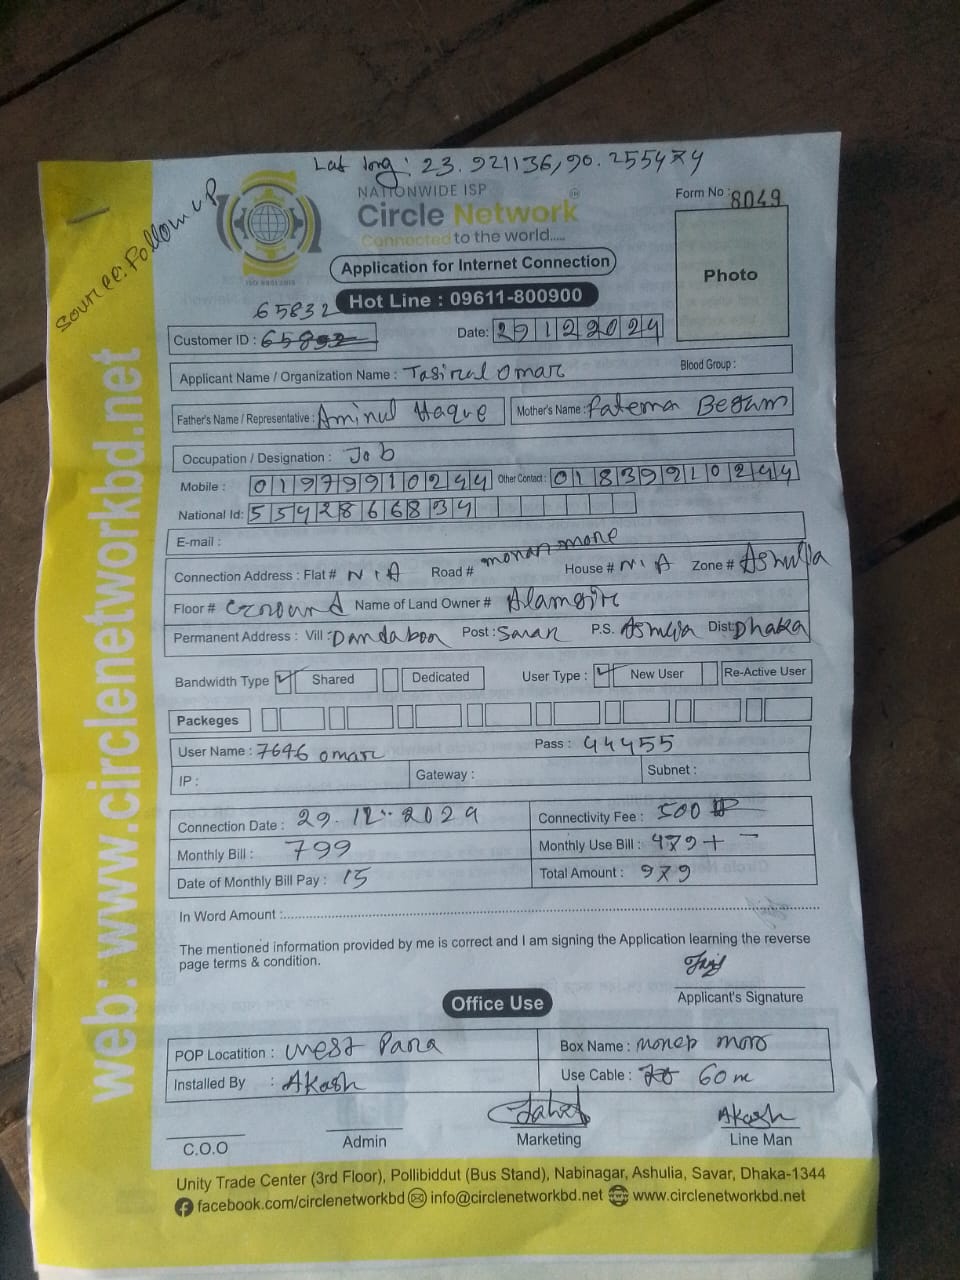 Lat long: 23.921136,90.255474
Source: Follow UP
NATIONWIDE ISP
Form No : 8049
Circle Network
Connected to the world.....
Photo
Application for Internet Connection
Hot Line : 09611-800900
65832
Customer ID :
Date: 29122024
Applicant Name / Organization Name : Tasirul omar Blood Group :
Father's Name / Representative : Aminul Haque Mother's Name : Fatema Begum
Occupation / Designation : Job
Mobile : 01979910244 Other Contact : 01839910244
National Id: 5542866834
E-mail :
Connection Address : Flat # N/A Road # monan mone House # N/A Zone # Ashulia
Floor # Ground Name of Land Owner # Alamgir
Permanent Address : Vill : Dandabon Post : Savar P.S. Ashulia Dist: Dhaka
Bandwidth Type ✓ Shared Dedicated User Type : ✓ New User Re-Active User
Packeges
User Name : 7646 omar Pass : 44455
IP : Gateway : Subnet :
Connection Date : 29.12.2024 Connectivity Fee : 500
Monthly Bill : 799 Monthly Use Bill : 479 +
Date of Monthly Bill Pay : 15 Total Amount : 979
In Word Amount :
The mentioned information provided by me is correct and I am signing the Application learning the reverse
page terms & condition.
Applicant's Signature
Office Use
POP Locatition : West Para Box Name : moner moro
Installed By : Akash Use Cable : 60 m
Akash
C.O.O Admin Marketing Line Man
web: www.circlenetworkbd.net
Unity Trade Center (3rd Floor), Pollibiddut (Bus Stand), Nabinagar, Ashulia, Savar, Dhaka-1344
facebook.com/circlenetworkbd info@circlenetworkbd.net www.circlenetworkbd.net